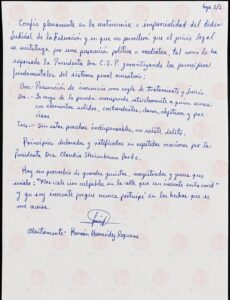 hoja 2/2
Confío plenamente en la autonomía e imparcialidad del Poder
Judicial de la Federación y en que no permitirá que el juicio legal
se sustituya, por una persecución política o mediática, tal como lo ha
expresado la Presidenta Dra. C.S.P. garantizando los principios
fundamentales del sistema penal acusatorio:
Uno.- Presunción de inocencia como regla de tratamiento y Juicio
Dos.- La carga de la prueba corresponde estrictamente a quien acusa,
con elementos sólidos, contundentes, claros, objetivos y pre-
cisos
Tres.- Son estas pruebas indispensables, no existe delito.
Principios declarados y ratificados en repetidas ocasiones por la
Presidenta Dra. Claudia Sheinbaum Pardo.
Hay un proverbio de grandes juristas, magistrados y jueces que
señala: "Más vale cien culpables en la calle, que un inocente en la cárcel"
y yo soy inocente porque nunca participé en los hechos que se
me acusa.
Atentamente- Hernán Bermúdez Requena